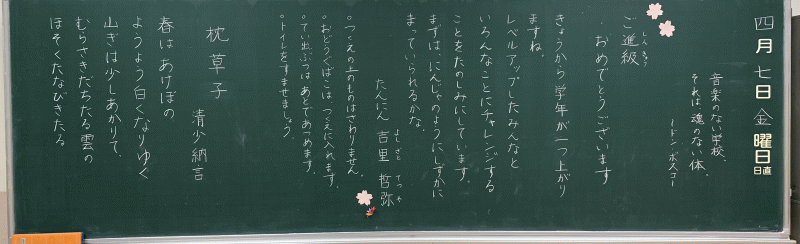 四月七日 金曜日
日直
音楽のない学校、
それは魂のない体。
ードン・ボスコー
ご進級
しんきゅう
おめでとうございます
きょうから学年が一つ上がり
ますね。
レベルアップしたみんなと
いろんなことにチャレンジする
ことをたのしみにしています。
まずは、にんじゃのようにしずかに
まっていられるかな。
たんにん 吉里 哲弥
よしざと てつや
○つくえの上のものはさわりません。
・おどうぐばこは、つくえに入れます。
・てい出ぶつはあとであつめます。
○トイレをすませましょう。
枕草子
清少納言
春はあけぼの
ようよう白くなりゆく
山ぎは少しあかりて、
むらさきだちたる雲の
ほそくたなびきたる